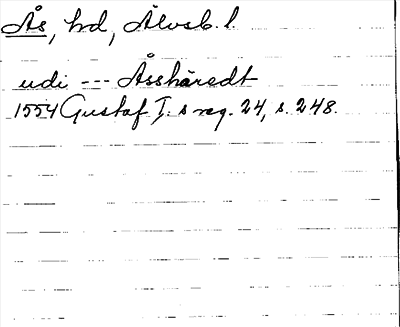 Ås, hd, Älvsb. l.
udi --- Åsshäredt
1554 Gustaf I:s reg. 24, s. 248.